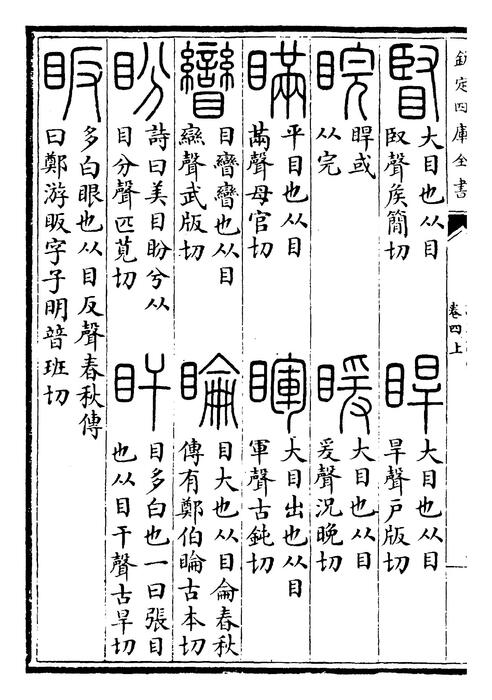 欽定四庫全書
卷四上
䁂
大目也从目
臤聲矦簡切
睅
大目也从目
旱聲戶版切
睆
睅或
从完
䁔
大目也从目
爰聲況晚切
瞞
平目也从目
㒼聲母官切
睴
大目出也从目
軍聲古鈍切
矕
目矕矕也从目
䜌聲武版切
睔
目大也从目侖春秋
傳有鄭伯睔古本切
盼
詩曰美目盼兮从
目分聲匹莧切
盰
目多白也一曰張目
也从目干聲古旱切
眅
多白眼也从目反聲春秋傳
曰鄭游眅字子明普班切